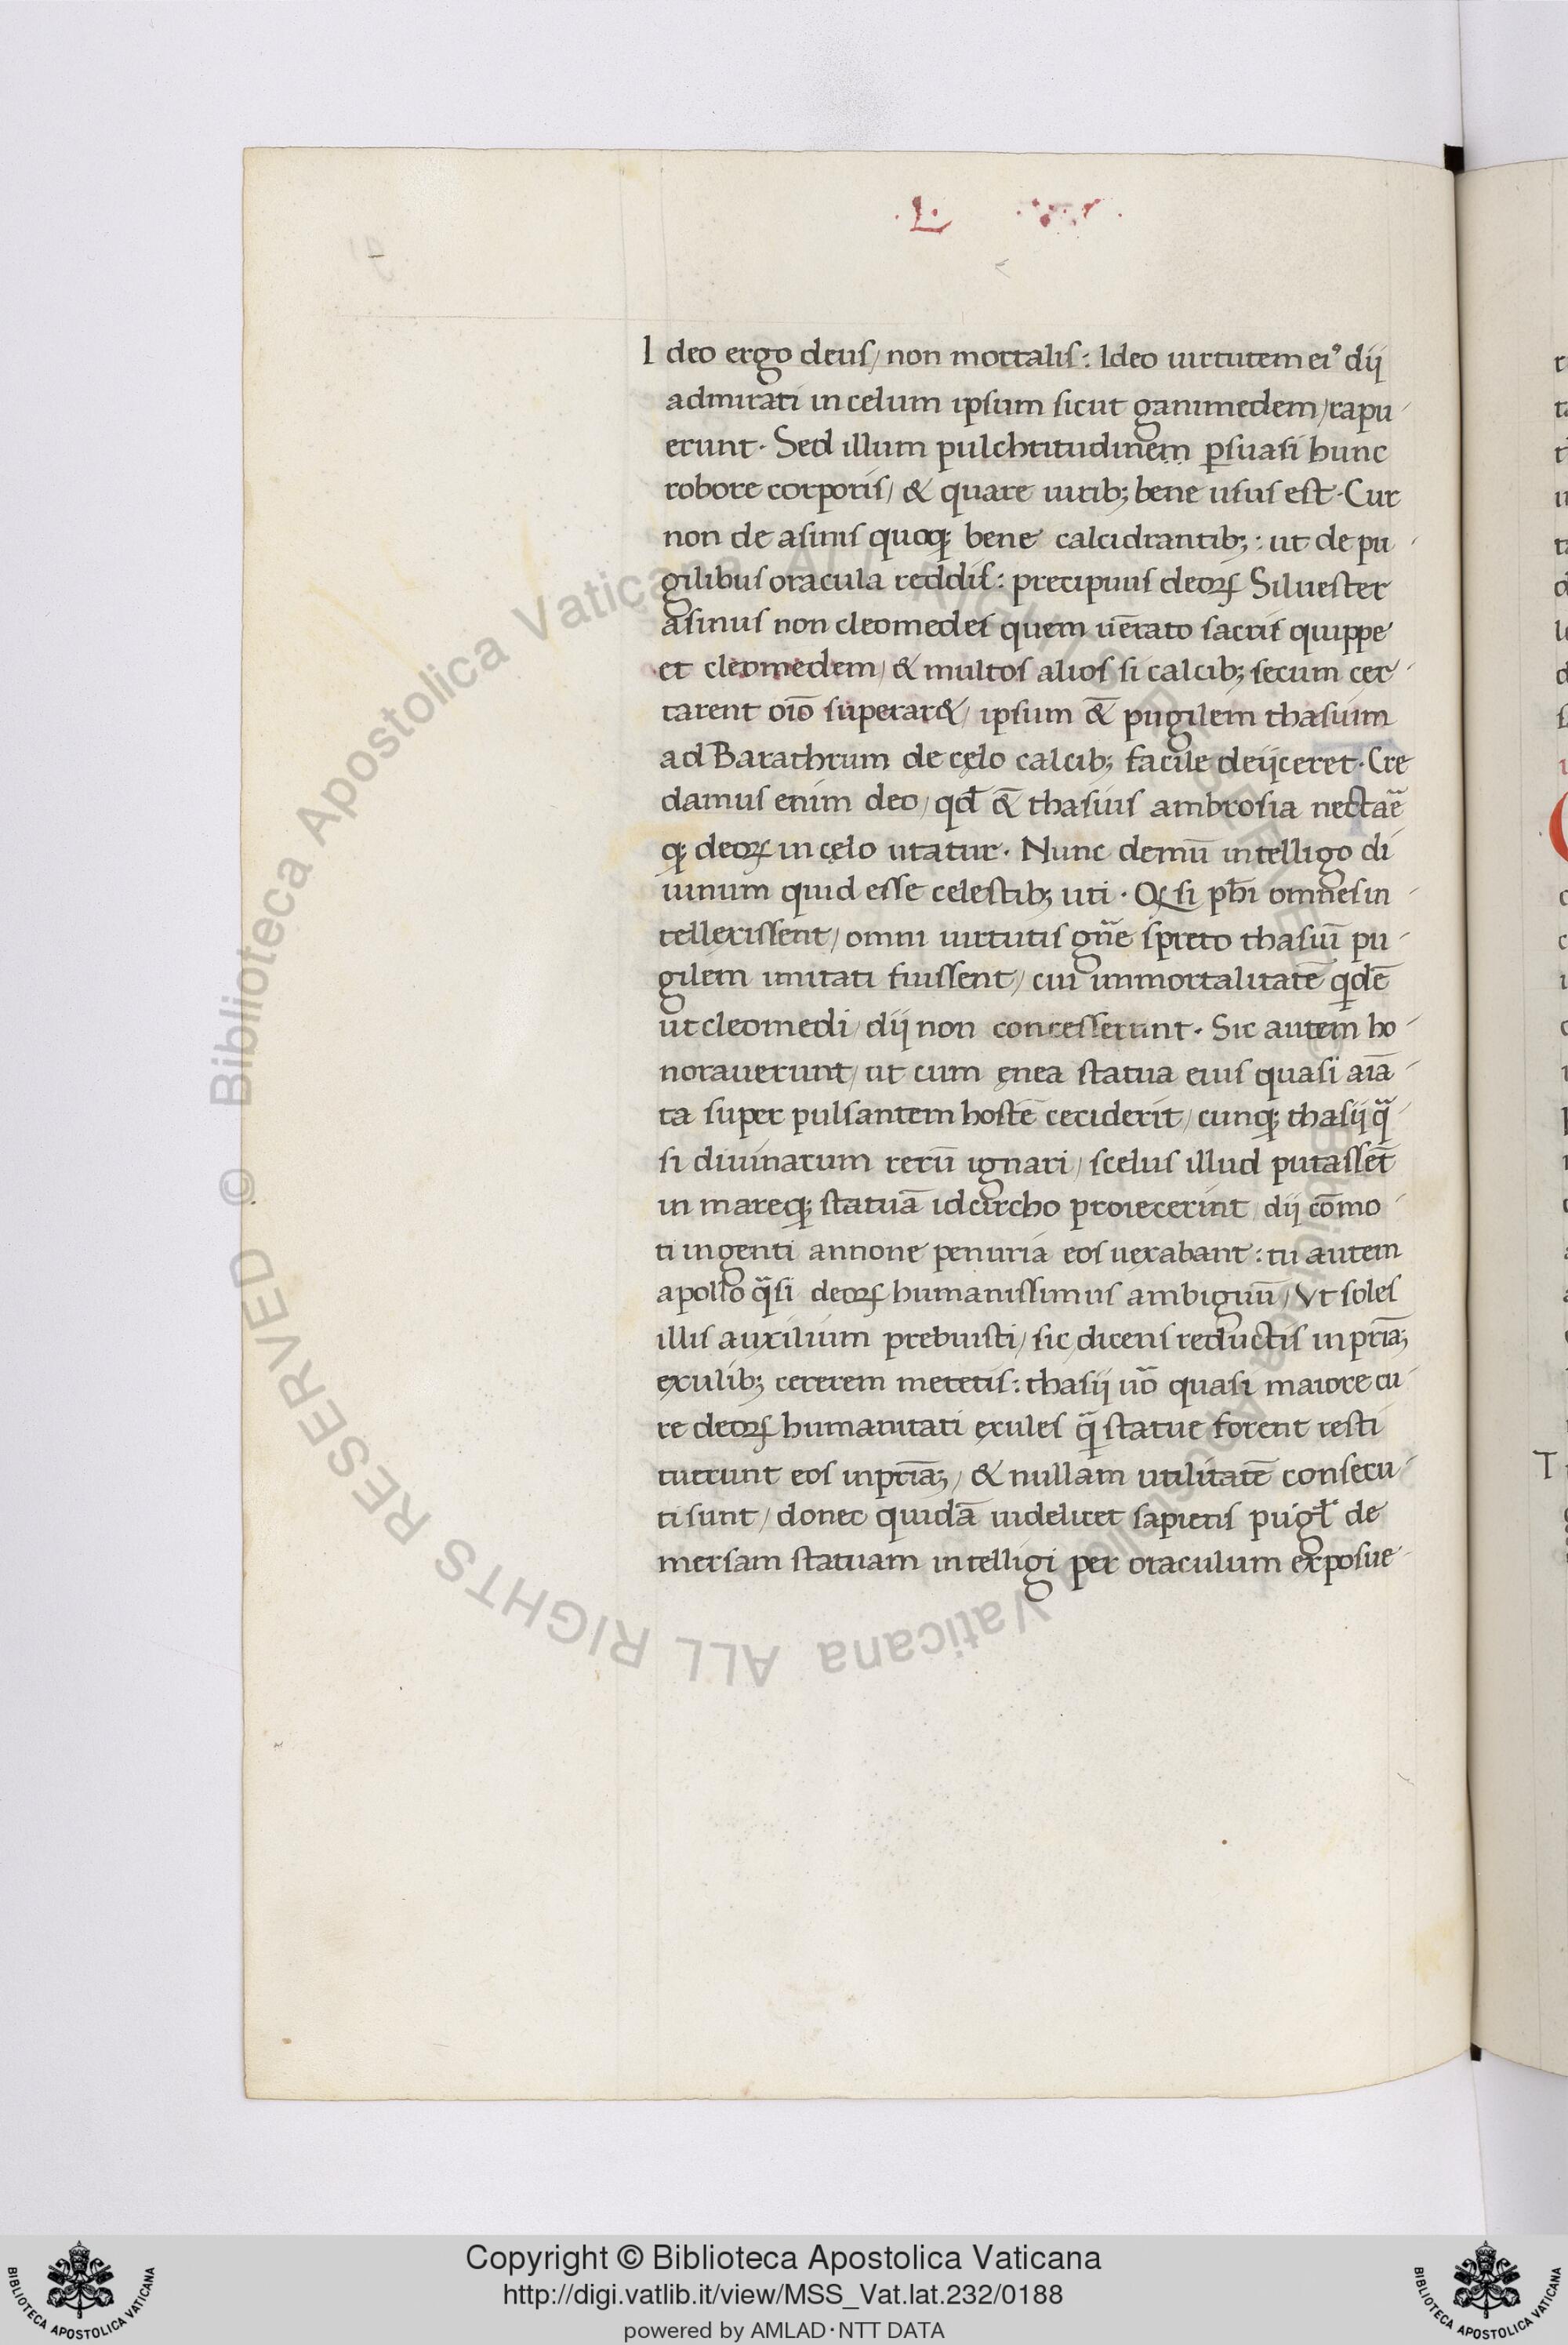 .L.
I deo ergo deus / non mortalis : Ideo uirtutem ei᾽ dij
admirati in celum ipsum sicut ganimedem / rapu
erunt . Sed illum pulchritudinem ꝑsuasi hunc
robore corporis / & quare uirib; bene usus est . Cur
non de asinis quoq; bene calcidrantib; : ut de pu
gilibus oracula reddis : precipuus deoꝝ Siluester
asinus non cleomedes quem uēerato sacris quippe
et cleomedem / & multos alios si calcib; secum cer
tarent oīo superar& / ipsum &̄ pugilem thasium
ad Barathrum de cęlo calcib; facile deijceret . Cre
damus enim deo / qđ &̄ thasius ambrosia nectaē
q; deoꝝ in cęlo utatur . Nunc demū intelligo di
uinum quid esse celestib; uti . Qꝫ si phī omnes in
tellexissent / omni uirtutis gn̄e spreto thasiū pu
gilem imitati fuissent / cui immortalitatē qdē
ut cleomedi / dij non concesserunt . Sic autem ho
norauerunt / ut cum ęnea statua eius quasi aīa
ta super pulsantem hostē ceciderit / cunq; thasij q̄
si diuinarum rerū ignari / scelus illud putassēt
in mareq; statuā idcircho proiecerint / dij cōmo
ti ingenti annone penuria eos uexabant : tu autem
apollo q̄si deoꝝ humanissimus ambiguū / Vt soles
illis auxilium prebuisti / sic dicens reductis in pr̄iaꝫ
exulib; cererem metetis : thasij uō quasi maiore cu
re deoꝝ humanitati exules q̄ statue forent resti
tuerunt eos in pr̄iaꝫ / & nullam utilitatē consecu
ti sunt / donec quidā uidelicet sapiens pugł de
mersam statuam intelligi per oraculum exposue
Copyright © Biblioteca Apostolica Vaticana
http://digi.vatlib.it/view/MSS_Vat.lat.232/0188
powered by AMLAD·NTT DATA
© Biblioteca Apostolica Vaticana ALL RIGHTS RESERVED
© Biblioteca Apostolica Vaticana ALL RIGHTS RESERVED
BIBLIOTECA APOSTOLICA VATICANA
BIBLIOTECA APOSTOLICA VATICANA